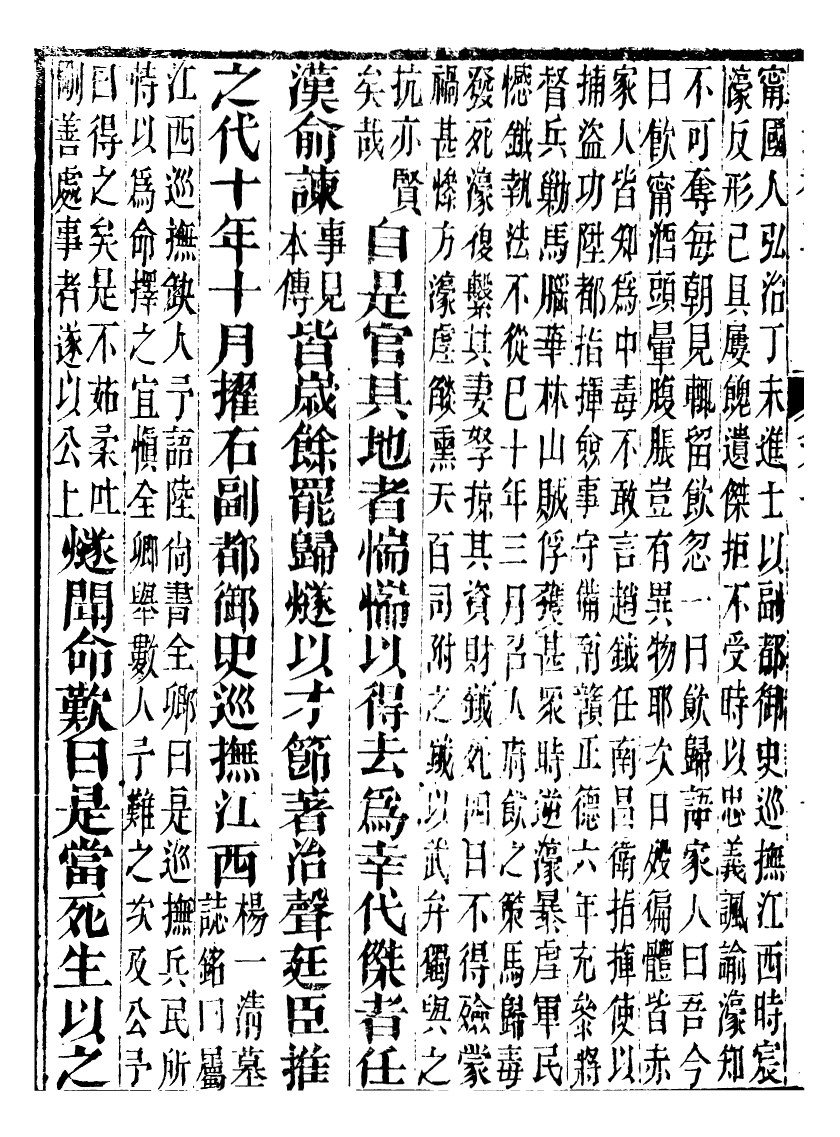 甯國人弘治丁未進士以副都御史巡撫江西時宸
濠反形已具屢餽遺傑拒不受時以忠義諷諭濠知
不可奪每朝見輒留飲忽一日飲歸語家人曰吾今
日飲甯酒頭暈腹脹豈有異物耶次日歿徧體皆赤
家人皆知爲中毒不敢言趙鉞任南昌衛指揮使以
捕盜功陞都指揮僉事守備南贛正德六年充參將
督兵勦馬腦華林山賊俘發甚眾時逆濠暴虐軍民
憾鉞執法不從巳十年三月召入府飲之策馬歸毒
發死濠復繫其妻孥掠其資財鉞死四日不得殮蒙
禍甚慘方濠虐燄熏天百司附之鉞以武弁獨與之
抗亦賢
矣哉
自是官其地者惴惴以得去爲幸代傑者任
漢俞諫
事見
本傳
皆歲餘罷歸燧以才節著治聲廷臣推
之代十年十月擢右副都御史巡撫江西
楊一淸墓
誌銘曰屬
江西巡撫缺人予語陸尙書全卿曰是巡撫兵民所
恃以爲命擇之宜愼全卿舉數人予難之次及公予
曰得之矣是不茹柔吐
剛善處事者遂以公上
燧聞命歎曰是當死生以之